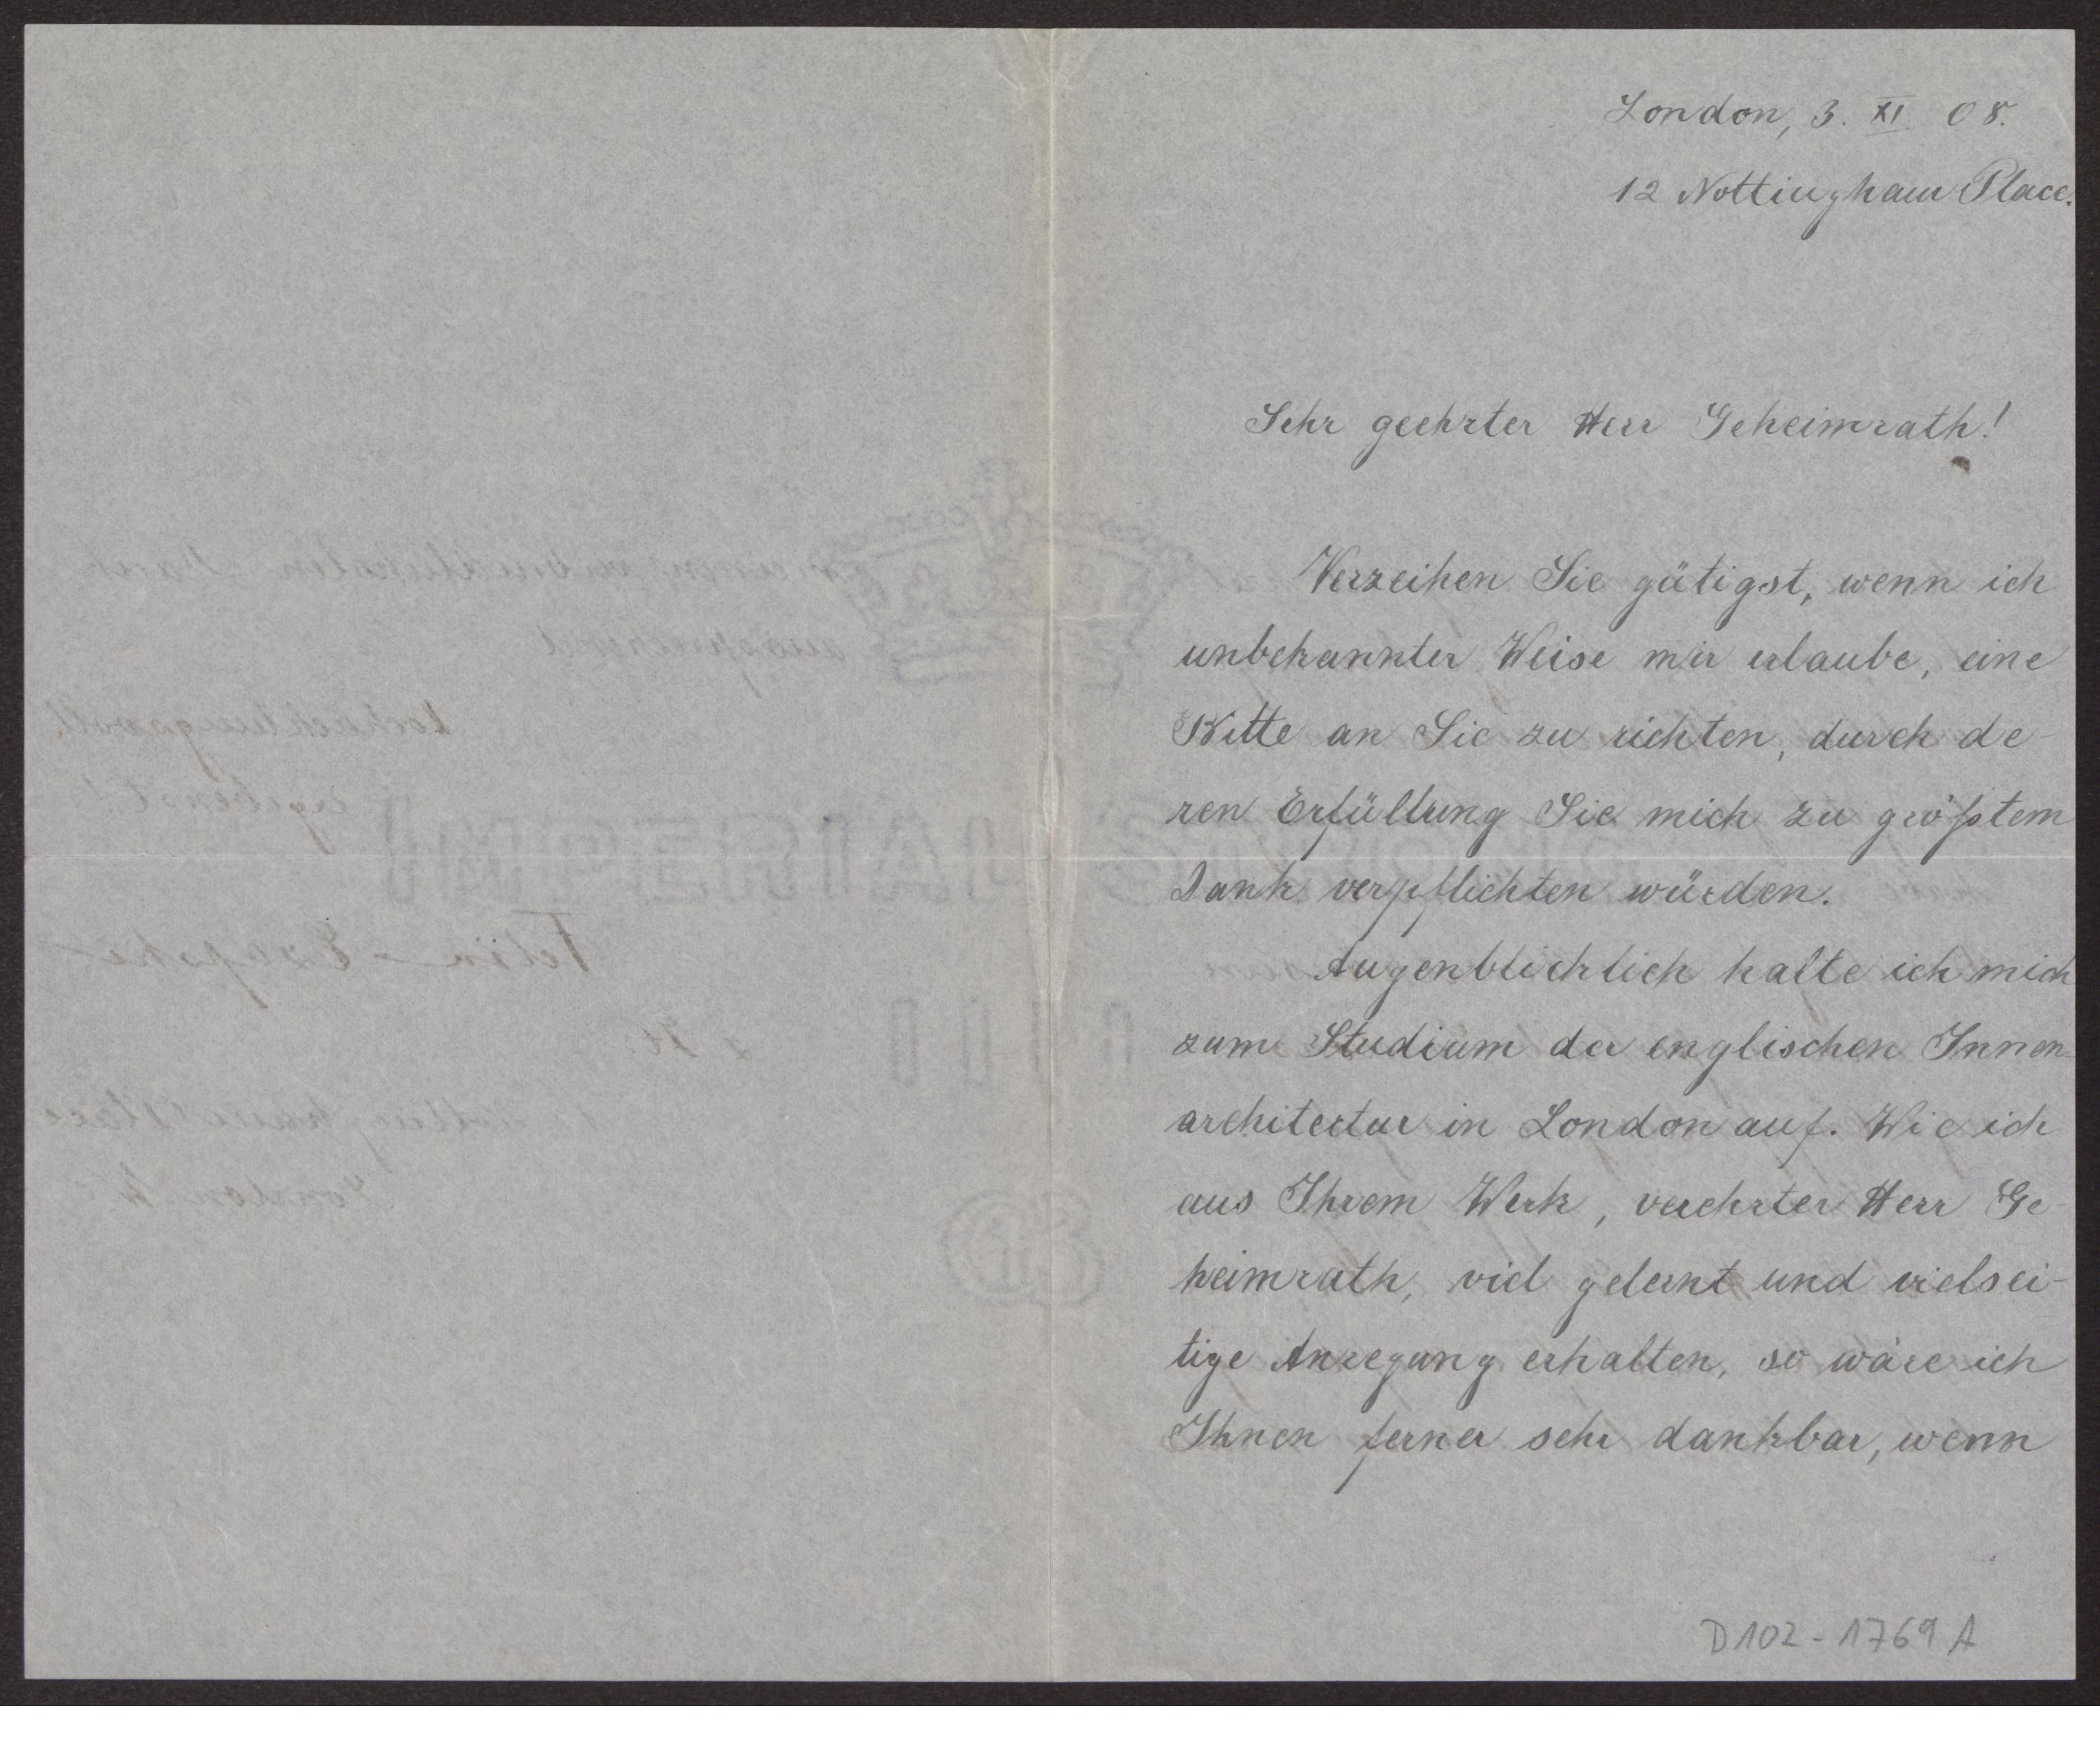 London, 3. XI 08.
12 Nottingham Place.
Sehr geehrter Herr Geheimrath!
Verzeihen Sie gütigst, wenn ich
unbekannter Weise mir erlaube, eine
Bitte an Sie zu richten, durch de-
ren Erfüllung Sie mich zu größtem
Dank verpflichten würden.
Augenblicklich halte ich mich
zum Studium der englischen Innen-
architectur in London auf. Wie ich
aus Ihrem Werk, verehrter Herr Ge
heimrath, viel gelernt und vielsei-
tige Anregung erhalten, so wäre ich
Ihnen ferner sehr dankbar, wenn
D102-1769 A